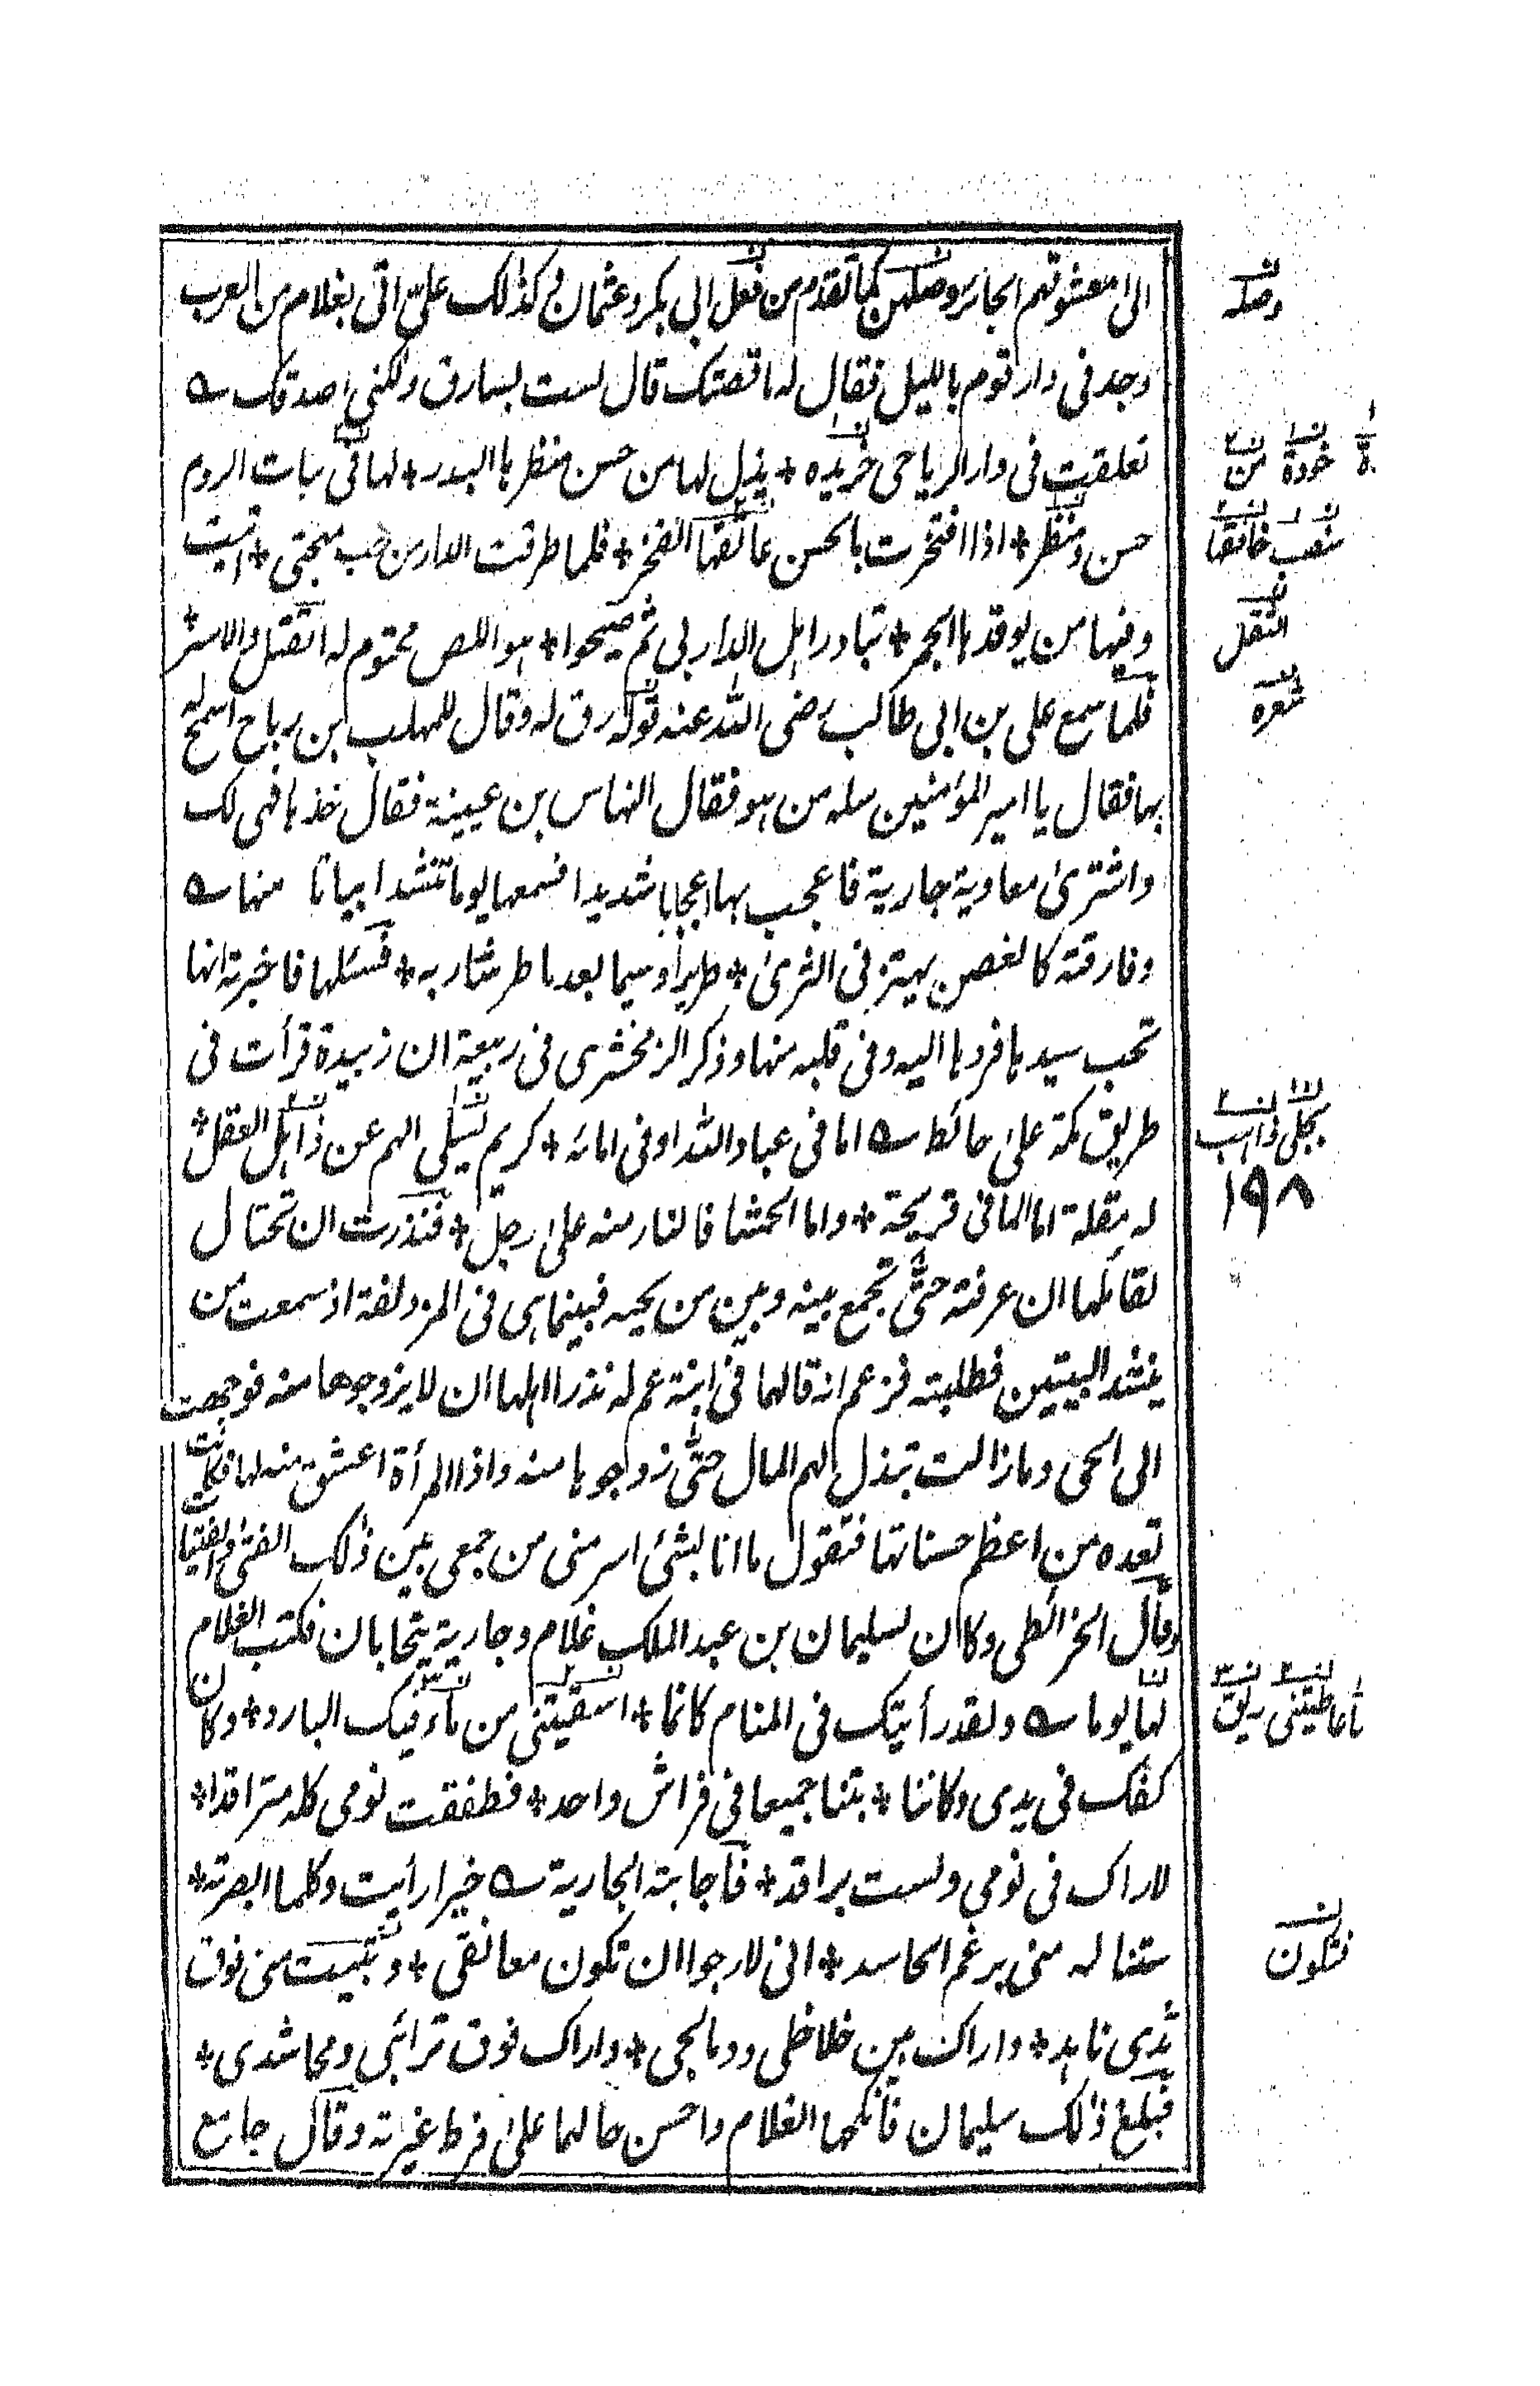 الى معشوقهم الجائز وصلهن كما تقدم من فعل ابى بكر وعثمان وكذلك على اتى بغلام من العرب
وجد فى دار قوم بالليل فقال له ما قصتك قال لست بسارق ولكنى اصدقك
تعلقت فى دار الرياحى خريده * يذل لها من حسن منظرها البدر * لها فى بنات الروم
حسن ومنظر * اذا افتخرت بالحسن عانقها الفخر * فلما طرقت الدار من حب مهجتى * اتيت
وفيها من يوقدها الجمر * تبادر اهل الدار لى ثم صيحوا * هو اللص محتوم له القتل والاسر *
فلما سمع على بن ابى طالب رضى الله عنه قوله رق له وقال للمهلب بن رباح اسمح له
بها فقال يا امير المؤمنين سله من هو فقال النهاس بن عيينة فقال خذها فهى لك
واشترى معاوية جارية فاعجب بها اعجابا شديدا فسمعها يوما تنشد ابياتا منها
وفارقته كالغصن يهتز فى الثرى * طريرا وسيما بعد ما طر شاربه * فسئلها فاخبرته انها
تحب سيدها فردها اليه وفى قلبه منها وذكر الزمخشرى فى ربيعة ان زبيدة قرأت فى
طريق مكة على حائط اما فى عباد الله او فى امائه * كريم يسلى الهم عن ذاهل العقل *
له مقلة اما الما فى قريحة * واما الحشا فالنار منه على رجل * فنذرت ان تحتال
لقائلها ان عرفته حتى تجمع بينه وبين من يحبه فبينما هى فى المزدلفة اذ سمعت من
ينشد البيتين فطلبته فزعم انه قالهما فى ابنة عم له نذر اهلها ان لا يزوجوها منه فوجهت
الى الحى وما زالت تبذل لهم المال حتى زوجوها منه واذا المرأة اعشق منه لها فكانت
تعده من اعظم حسناتها فتقول ما انا بشئ اسر منى من جمعى بين ذلك الفتى والفتيات
وقال الخرائطى وكان لسليمان بن عبد الملك غلام وجارية يتحابان فكتب الغلام
لها يوما ولقد رأيتك فى المنام كانما * اسقيتنى من ماء فيك البارد * وكان
كفك فى يدى وكاننا * بتنا جميعا فى فراش واحد * فطفقت نومى كله متراقدا *
لاراك فى نومى ولست براقد * فاجابته الجارية خيرا رأيت وكلما ابصرته *
ستناله منى برغم الحاسد * انى لارجو ان تكون معانقى * وتبيت منى فوق
ثدى ناهد * واراك بين خلاخلى ودمالجى * واراك فوق ترائبى ومحاشدى *
فبلغ ذلك سليمان فانكحها الغلام واحسن حالهما على فرط غيرته وقال جامع
وصله
خودة من
عانقها
القتل
شعره
يجلى ذاهب
١٩٨
عاطيتنى ريق
فتكون